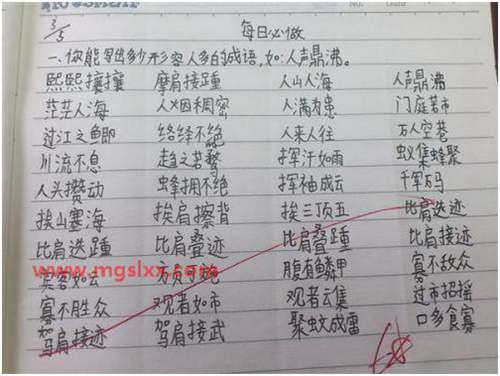 3/5 每日必做
一、你能写出多少形容人多的成语，如：人声鼎沸。
熙熙攘攘 摩肩接踵 人山人海 人声鼎沸
茫茫人海 人烟稠密 人满为患 门庭若市
过江之鲫 络绎不绝 人来人往 万人空巷
川流不息 趋之若鹜 挥汗如雨 蚁集蜂聚
人头攒动 蜂拥不绝 挥袖成云 千军万马
挨山塞海 挨肩擦背 挨三顶五 比肩迭迹
比肩迭踵 比肩叠迹 比肩叠踵 比肩接迹
宾客如云 腹有鳞甲 寡不敌众
www.mgslxx.com
寡不胜众 观者如市 观者云集 过市招摇
驾肩接迹 驾肩接武 聚蚊成雷 口多食寡